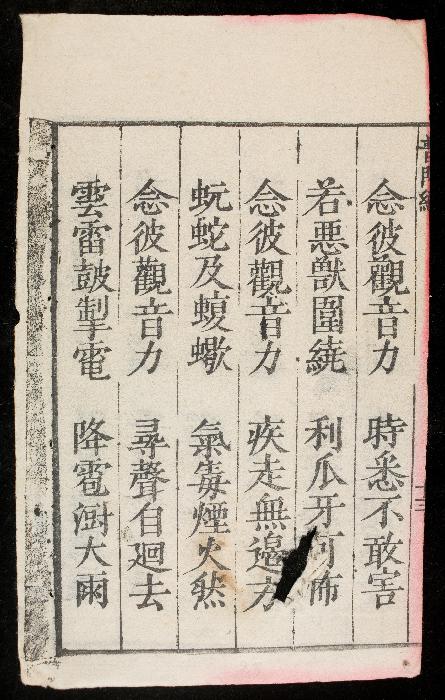 念彼觀音力 時悉不敢害
若悪獸圍繞 利爪牙可怖
念彼觀音力 疾走無邉方
蚖蛇及蝮蠍 氣毒煙火㷼
念彼觀音力 尋聲自廻去
雲雷鼓掣電 降雹澍大雨